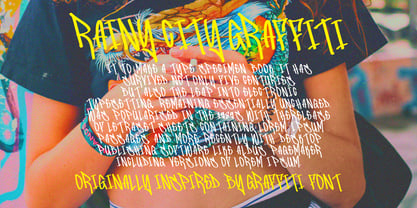 RAINY CITY GRAFFITI
IT TO MAKE A TYPE SPECIMEN BOOK. IT HAS
SURVIVED NOT ONLY FIVE CENTURIES,
BUT ALSO THE LEAP INTO ELECTRONIC
TYPESETTING, REMAINING ESSENTIALLY UNCHANGED.
WAS POPULARISED IN THE WITH THE RELEASE
OF LETRASET SHEETS CONTAINING LOREM IPSUM
PASSAGES AND MORE RECENTLY WITH DESKTOP
PUBLISHING SOFTWARE LIKE ALDUS PAGEMAKER
INCLUDING VERSIONS OF LOREM IPSUM
ORIGINALLY INSPIRED BY GRAFFITI FONT